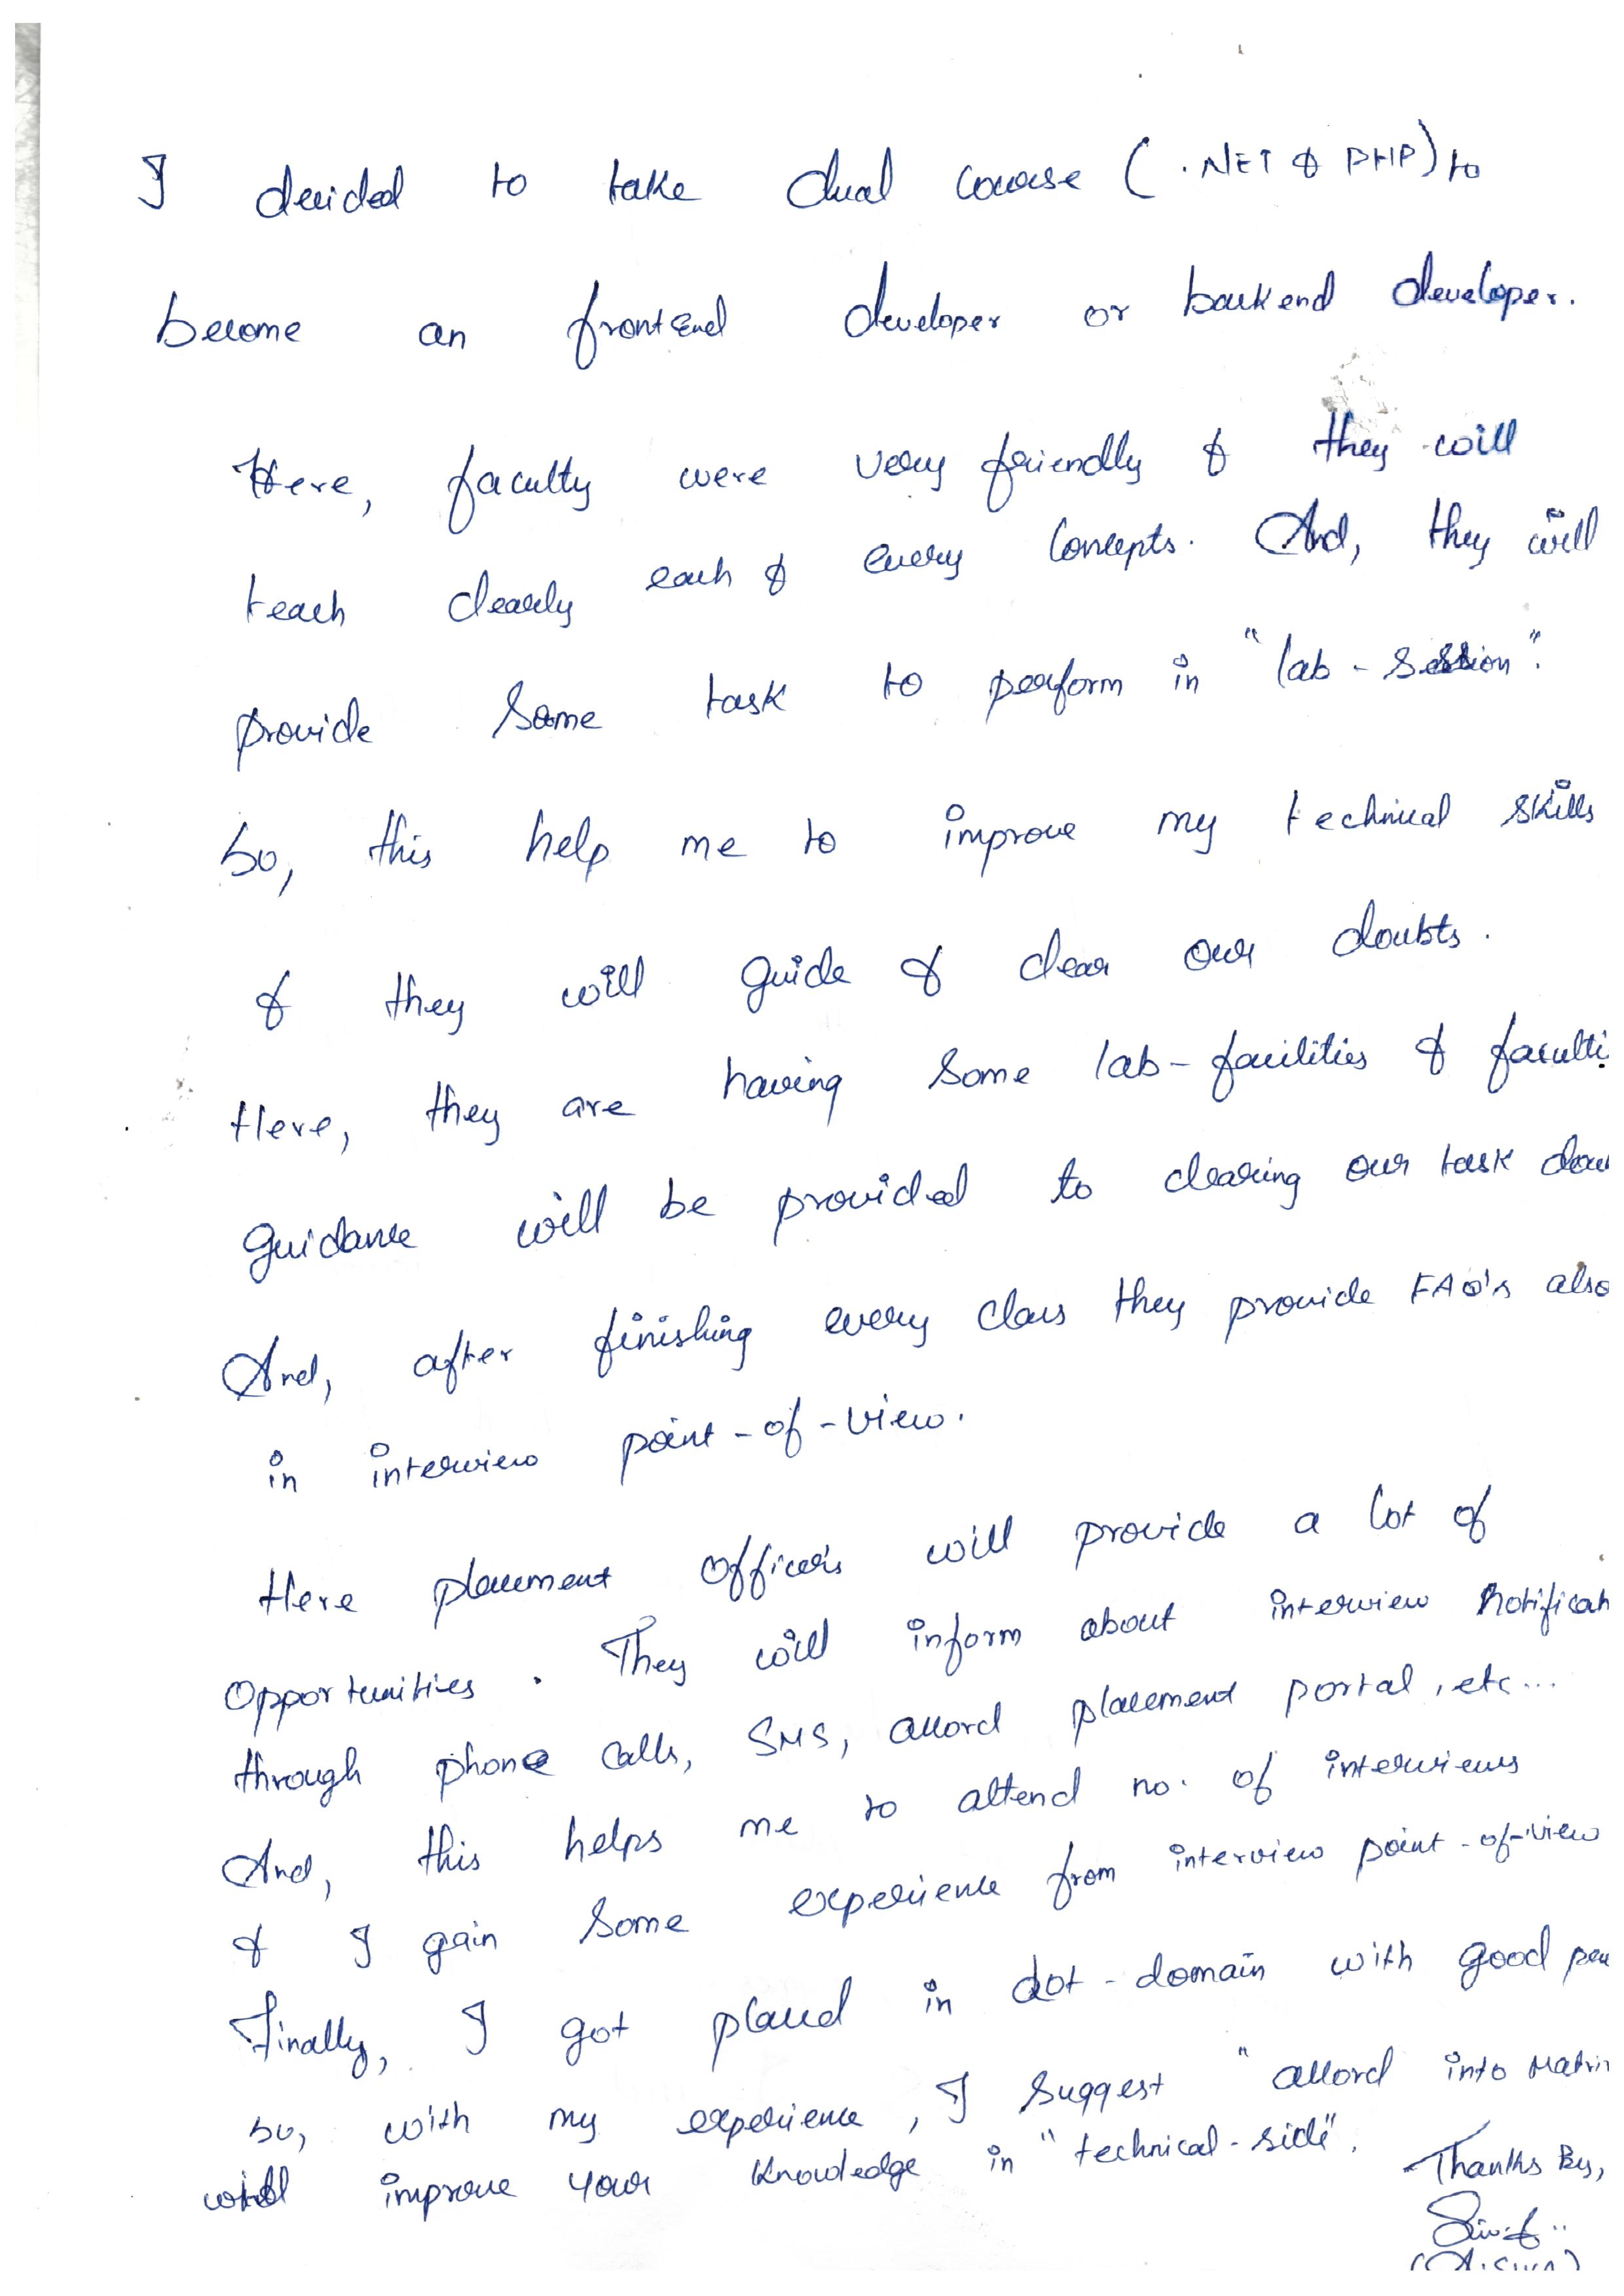 I decided to take dual course ( .NET & PHP) to
become an frontend developer or backend developer.
Here, faculty were very friendly & they will
teach clearly each & every concepts. And, they will
provide some task to perform in "lab - session".
So, this help me to improve my technical skills
& they will guide & clear our doubts.
Here, they are having some lab-facilities & faculti
guidance will be provided to clearing our task dou
And, after finishing every class they provide FAQ's also
in interview point-of-view.
Here placement officers will provide a lot of
opportunities. They will inform about interview notificat
through phone calls, SMS, accord placement portal, etc...
And, this helps me to attend no. of interviews
& I gain some experience from interview point-of-view
Finally, I got placed in dot-domain with good
So, with my experience, I suggest "accord into Matrix
will improve your knowledge in "technical-side".
Thanks By,